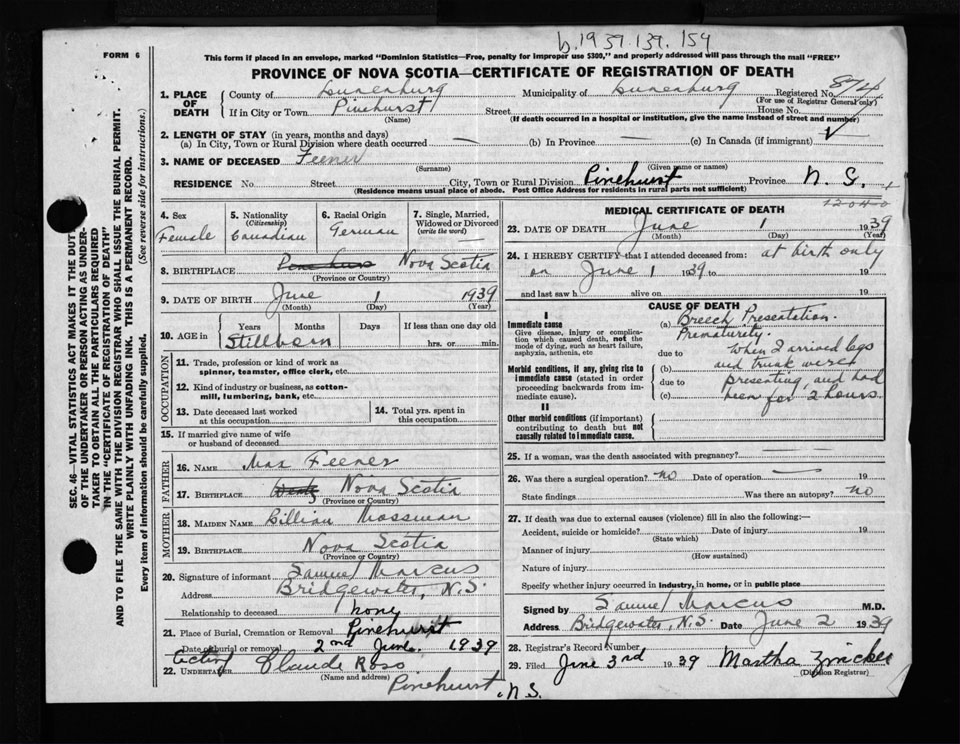 b.1939.139.154
FORM 6
This form if placed in an envelope, marked "Dominion Statistics—Free, penalty for improper use $300," and properly addressed will pass through the mail "FREE"
PROVINCE OF NOVA SCOTIA—CERTIFICATE OF REGISTRATION OF DEATH
1. PLACE OF DEATH
County of Lunenburg Municipality of Lunenburg Registered No. 874
(For use of Registrar General only)
If in City or Town Pinehurst Street House No.
(Name) (If death occurred in a hospital or institution, give the name instead of street and number)
2. LENGTH OF STAY (in years, months and days)
(a) In City, Town or Rural Division where death occurred — (b) In Province — (c) In Canada (if immigrant) ✓
3. NAME OF DECEASED Feener
(Surname) (Given name or names)
RESIDENCE No. Street City, Town or Rural Division Pinehurst Province N. S.
(Residence means usual place of abode. Post Office Address for residents in rural parts not sufficient)
4. Sex
Female
5. Nationality
(Citizenship)
Canadian
6. Racial Origin
German
7. Single, Married, Widowed or Divorced
(write the word)
—
8. BIRTHPLACE Nova Scotia
(Province or Country)
9. DATE OF BIRTH June 1 1939
(Month) (Day) (Year)
10. AGE in Years Months Days If less than one day old
Stillborn hrs. or min.
OCCUPATION
11. Trade, profession or kind of work as
spinner, teamster, office clerk, etc.
12. Kind of industry or business, as cotton-
mill, lumbering, bank, etc.
13. Date deceased last worked
at this occupation
14. Total yrs. spent in
this occupation
15. If married give name of wife
or husband of deceased
FATHER
16. NAME Max Feener
17. BIRTHPLACE Nova Scotia
(Province or Country)
MOTHER
18. MAIDEN NAME Lillian Mossman
19. BIRTHPLACE Nova Scotia
(Province or Country)
20. Signature of informant Samuel Marcus
Address Bridgewater, N.S.
Relationship to deceased none
21. Place of Burial, Cremation or Removal Pinehurst
Date of burial or removal 2nd June 1939
Acting
22. UNDERTAKER Claude Ross
(Name and address)
Pinehurst, N.S.
MEDICAL CERTIFICATE OF DEATH
23. DATE OF DEATH June 1 1939
(Month) (Day) (Year)
24. I HEREBY CERTIFY that I attended deceased from: at birth only
on June 1 1939 to 19
and last saw h alive on 19
CAUSE OF DEATH
I
Immediate cause
Give disease, injury or complication which caused death, not the mode of dying, such as heart failure, asphyxia, asthenia, etc
Morbid conditions, if any, giving rise to immediate cause (stated in order proceeding backwards from immediate cause).
II
Other morbid conditions (if important) contributing to death but not causally related to immediate cause.
(a) Breech Presentation.
Prematurity.
due to When I arrived legs
(b) and trunk were
due to presenting, and had
(c) been for 2 hours
25. If a woman, was the death associated with pregnancy?
26. Was there a surgical operation? no Date of operation — 19
State findings Was there an autopsy? no
27. If death was due to external causes (violence) fill in also the following:—
Accident, suicide or homicide? Date of injury 19
(State which)
Manner of injury
(How sustained)
Nature of injury
Specify whether injury occurred in industry, in home, or in public place
Signed by Samuel Marcus M.D.
Address Bridgewater, N.S. Date June 2 1939
28. Registrar's Record Number
29. Filed June 3rd 1939 Martha Zwicker
(Division Registrar)
SEC. 46—VITAL STATISTICS ACT MAKES IT THE DUTY
OF THE UNDERTAKER OR PERSON ACTING AS UNDER-
TAKER TO OBTAIN ALL THE PARTICULARS REQUIRED
IN THE "CERTIFICATE OF REGISTRATION OF DEATH"
AND TO FILE THE SAME WITH THE DIVISION REGISTRAR WHO SHALL ISSUE THE BURIAL PERMIT.
WRITE PLAINLY WITH UNFADING INK. THIS IS A PERMANENT RECORD.
Every item of information should be carefully supplied. (See reverse side for instructions.)